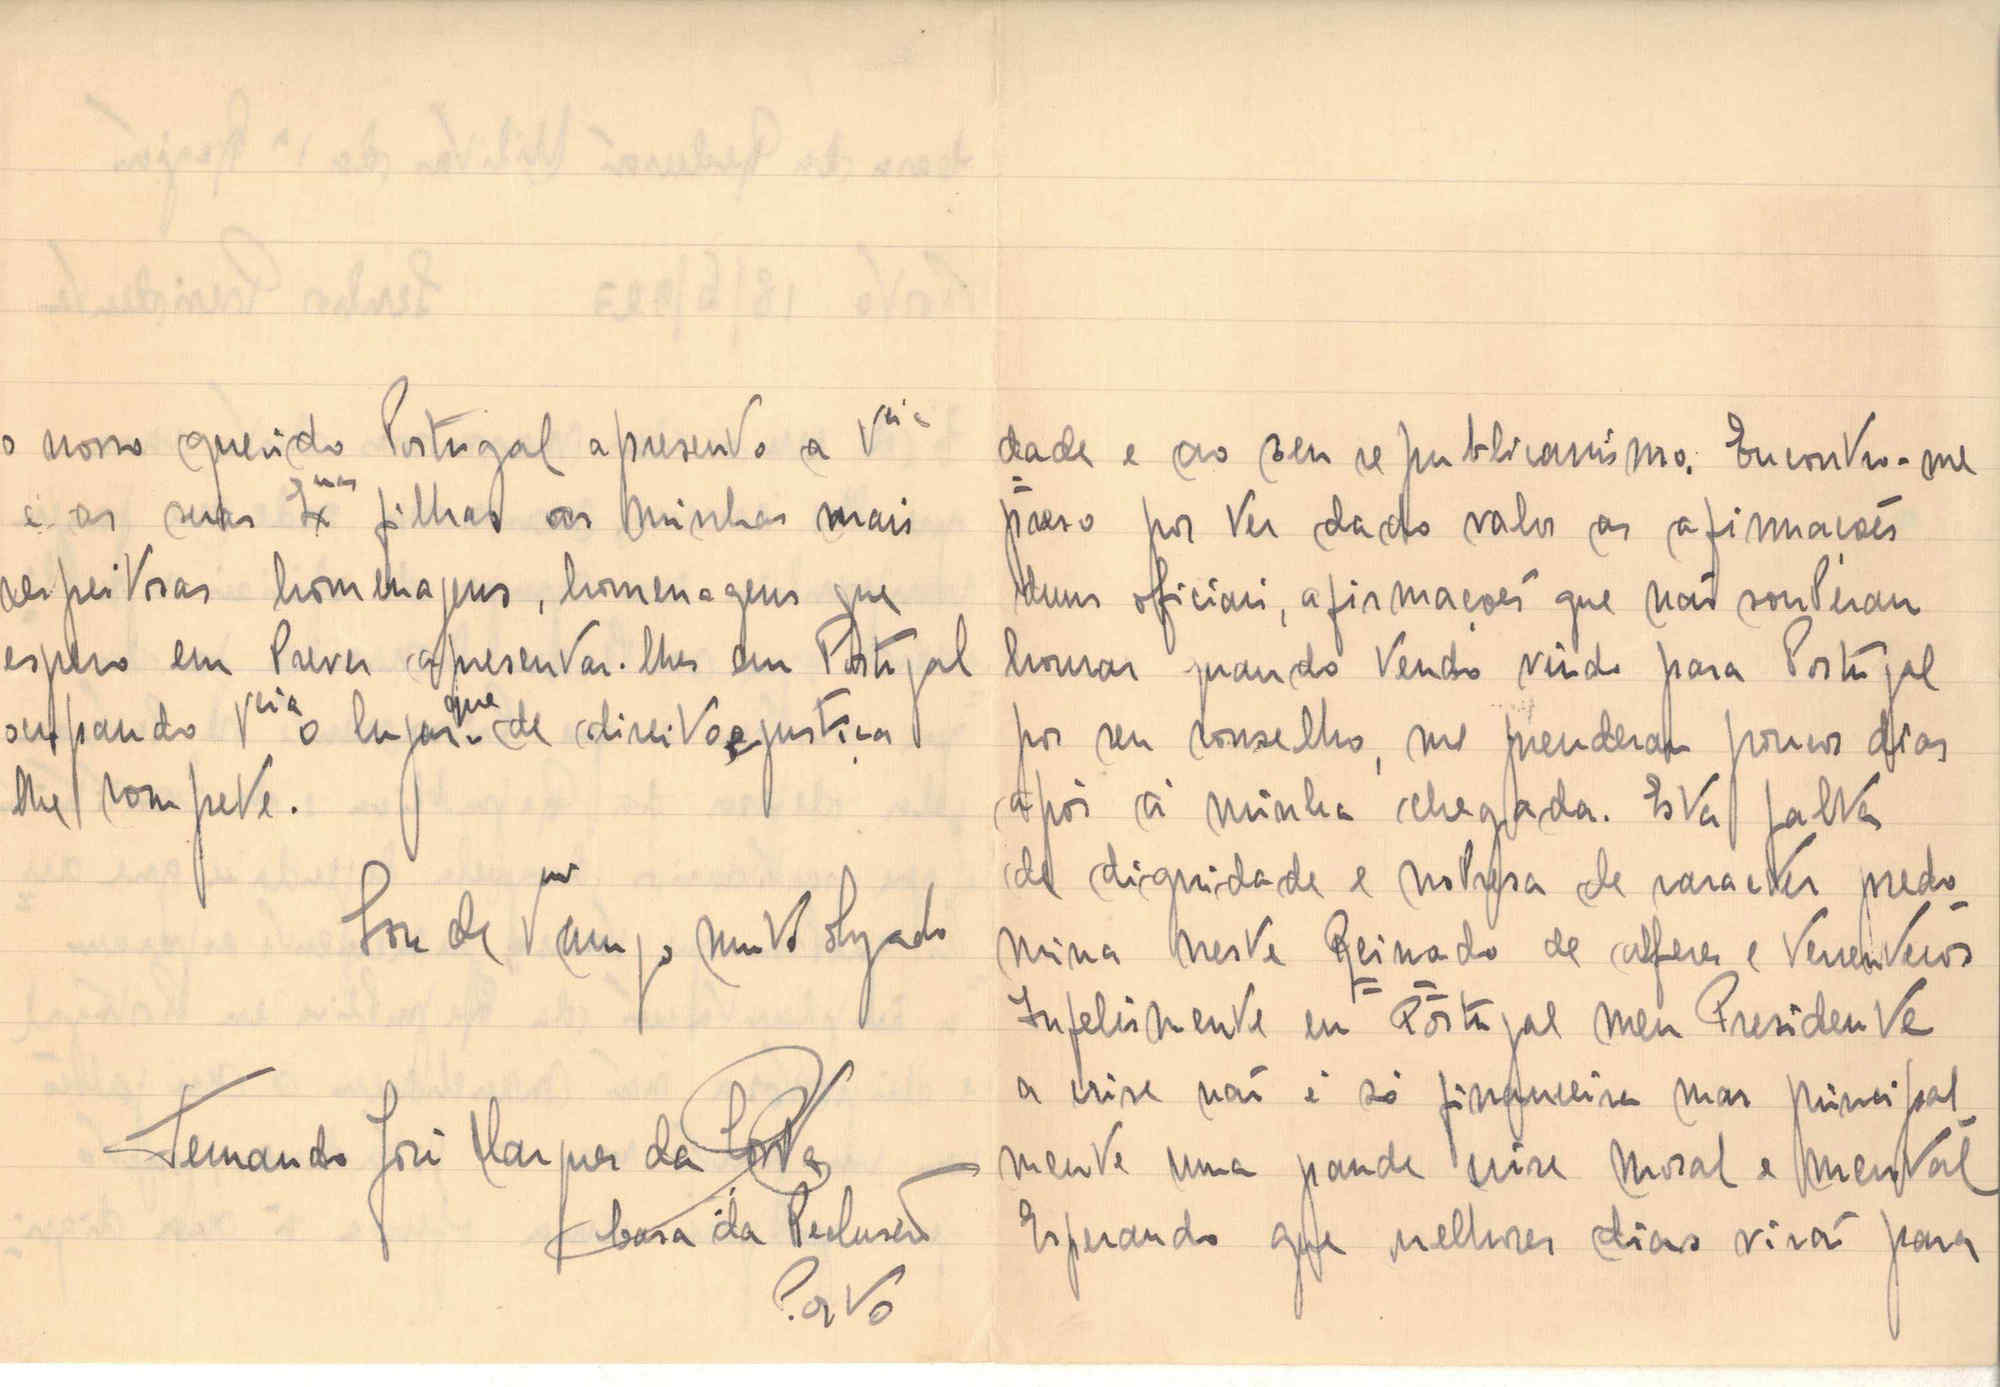 dade e ao seu republicanismo. Encontro-me
preso por ter dado valor as afirmações
duns oficiais, afirmações que não souberam
honrar quando tendo vindo para Portugal
por seu conselho, me prenderam poucos dias
após á minha chegada. Esta falta
de dignidade e nobresa de caracter predo
mina neste Reinado de alferes e tenenteros
Infelismente em Portugal meu Presidente
a crise não é só financeira mas principal
mente uma grande crise moral e mental
Esperando que melhores dias virão para
o nosso querido Portugal apresento a Vcia
e as suas Exmas filhas as minhas mais
respeitosas homenagens, homenagens que
espero em breve apresentar-lhes em Portugal
ocupando Vcia o lugar que de direito e justiça
lhe compete.
Sou de V amgo muito obgado
Fernando José Marques da Costa
Casa da Reclusão
Porto